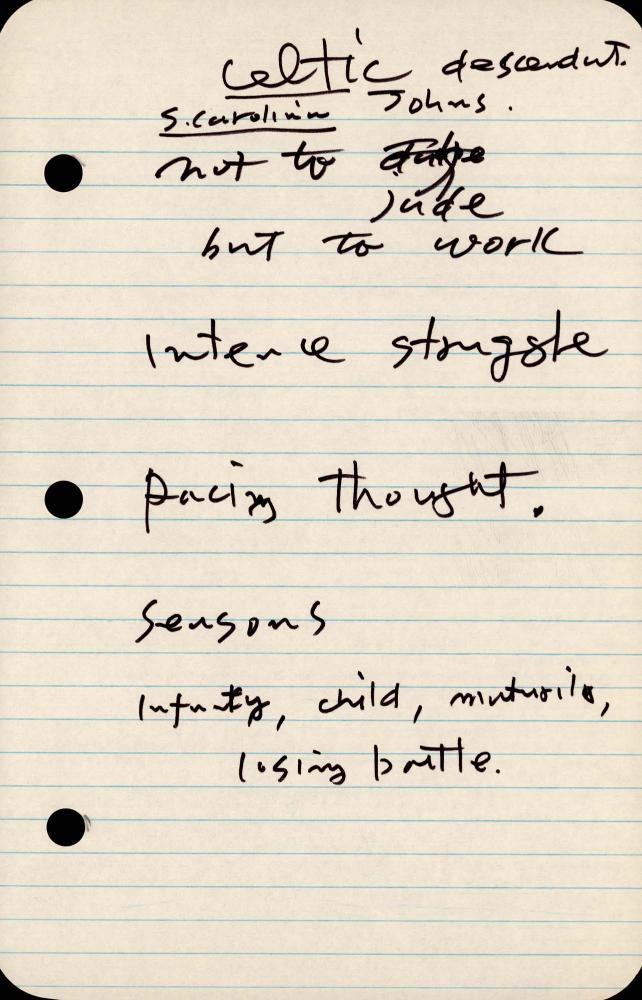 celtic descendent.
S. carolina Johns.
not to
jude
but to work
Intence struggle
pacing thought.
Seasons
Infanty, child, maturity,
losing battle.